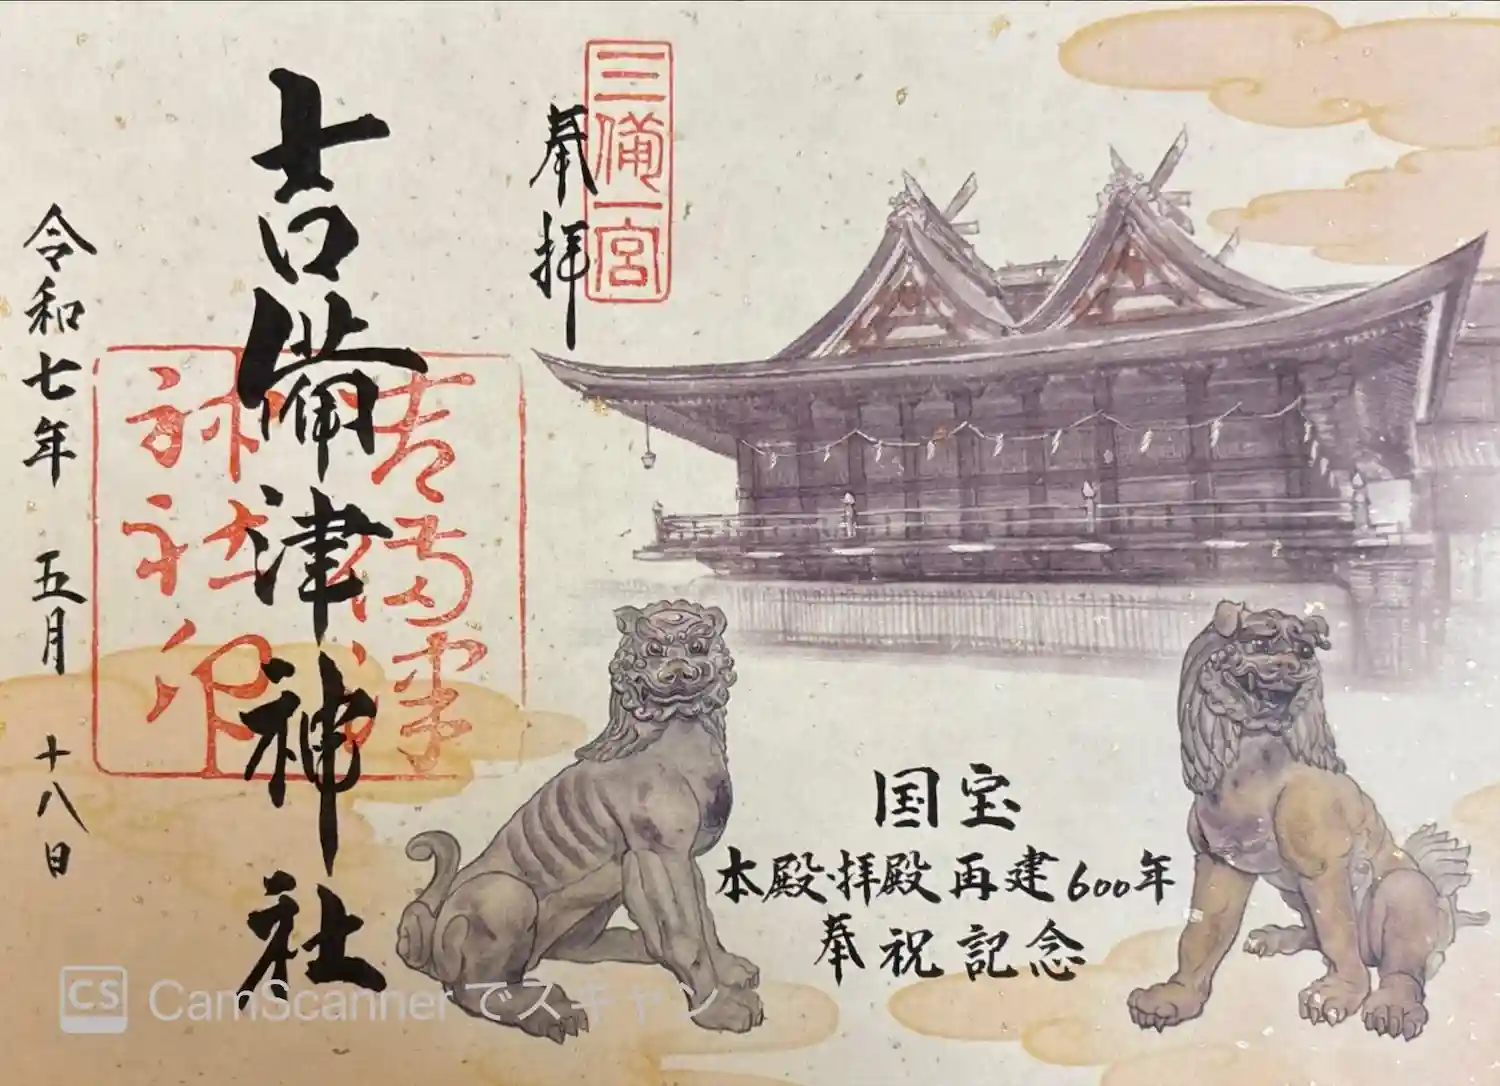 三備一宮
奉拝
吉備津神社
吉備津神社印
令和七年 五月 十八日
国宝
本殿・拝殿再建600年
奉祝記念
CS CamScannerでスキャン